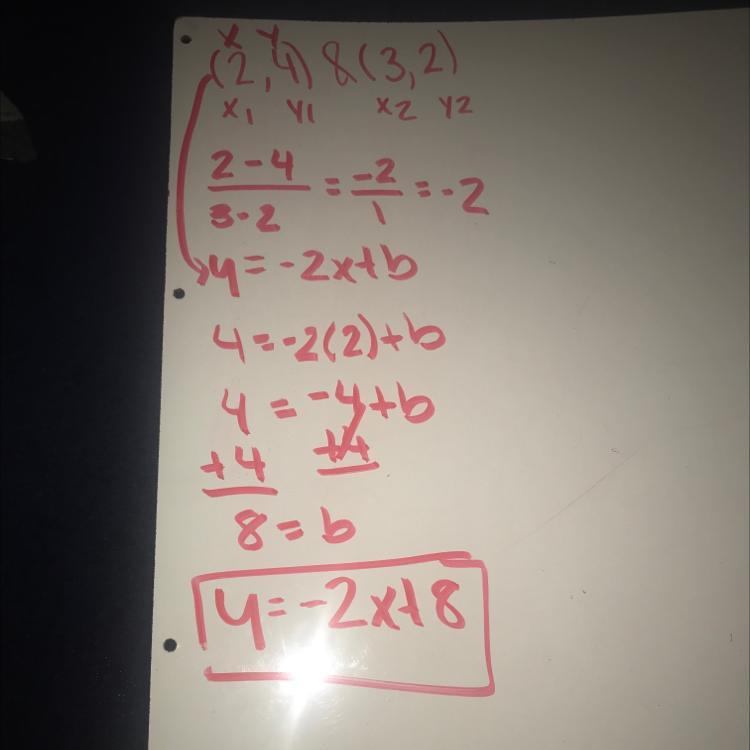 x y
(2,4) & (3,2)
x1 y1 x2 y2
2-4 / 3-2 = -2 / 1 = -2
y = -2x+b
4 = -2(2)+b
4 = -4+b
+4 +4
8 = b
y = -2x+8